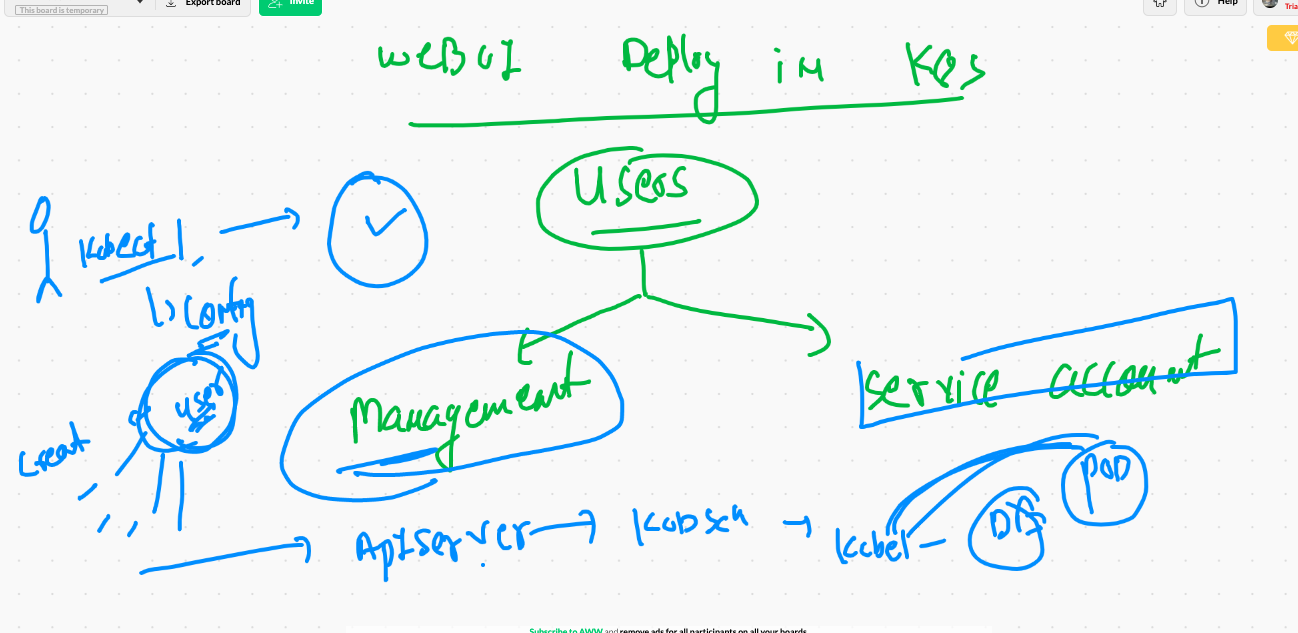 This board is temporary
Export board
Invite
Help
Tria
weBUI Deploy in K8s
Users
kubectl
config
Management
service account
user
creat
POD
ApIserver
kubsch
kubel
Subscribe to AWW and remove ads for all participants on all your boards